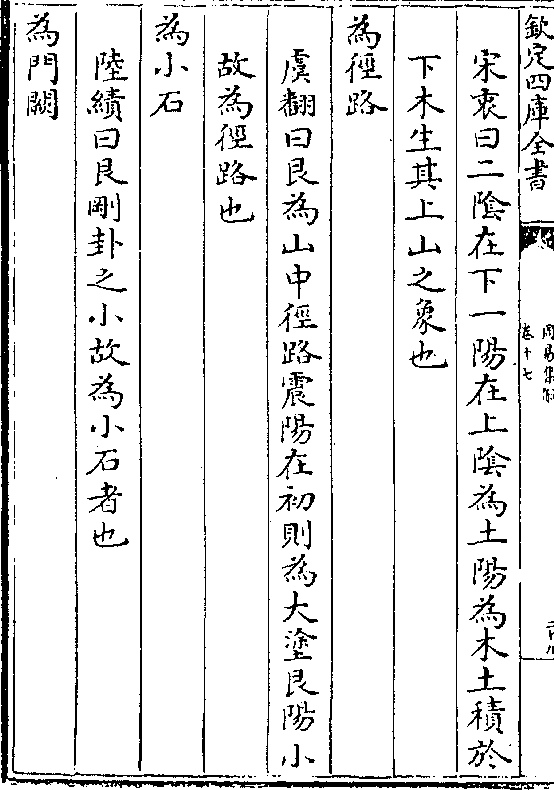 欽定四庫全書
周易集解
卷十七
宋衷曰二陰在下一陽在上陰為土陽為木土積於
下木生其上山之象也
為徑路
虞翻曰艮為山中徑路震陽在初則為大塗艮陽小
故為徑路也
為小石
陸績曰艮剛卦之小故為小石者也
為門闕